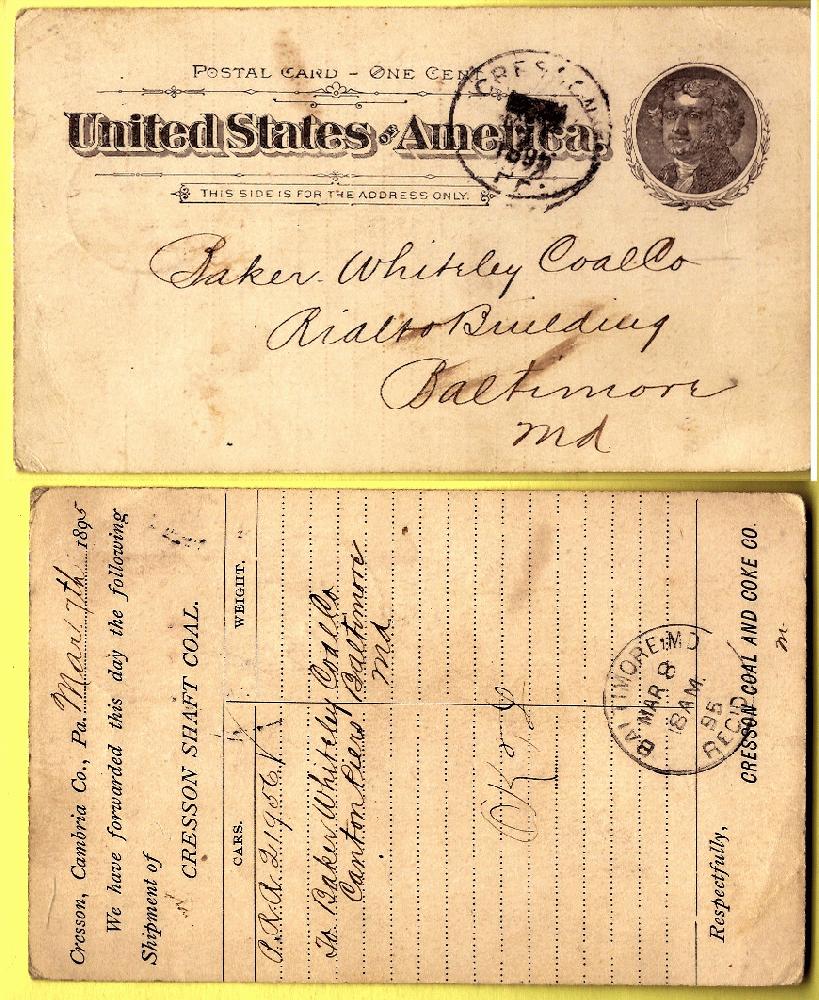 POSTAL CARD - ONE CENT
United States OF America
THIS SIDE IS FOR THE ADDRESS ONLY.
CRESSON
1895
Baker-Whiteley Coal Co
Rialto Building
Baltimore
Md
Cresson, Cambria Co., Pa. Mar 7th 1895
We have forwarded this day the following
Shipment of
CRESSON SHAFT COAL.
CARS. WEIGHT.
P.R.R. 21956
To Baker Whiteley Coal Co
Canton Piers Baltimore
Md
BALTIMORE, MD
MAR 8
8 AM
95
REC'D
Respectfully,
CRESSON COAL AND COKE CO.
m